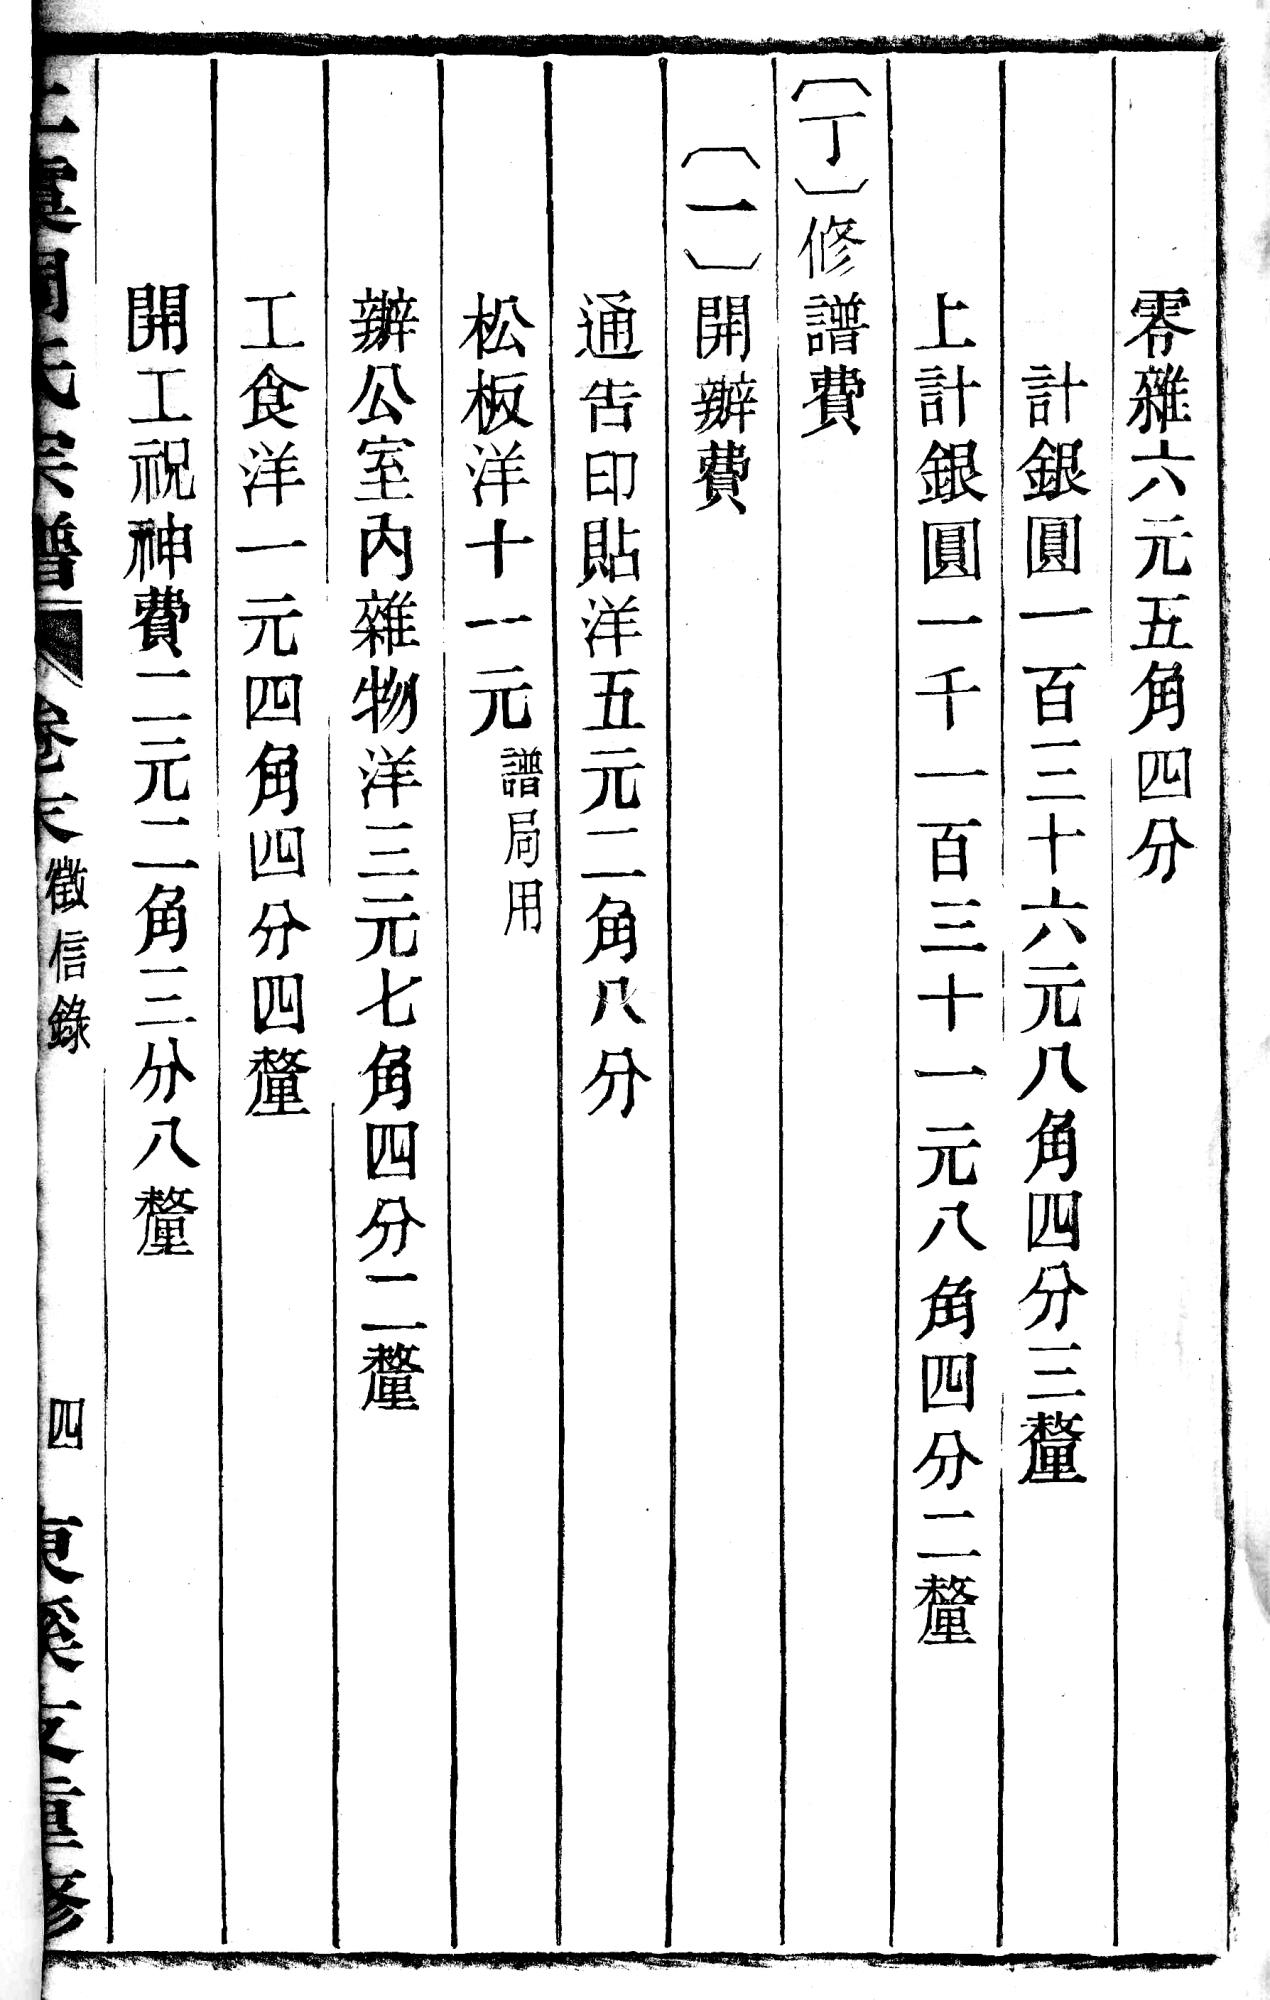 零雜六元五角四分
計銀圓一百三十六元八角四分三釐
上計銀圓一千一百三十一元八角四分二釐
〔丁〕修譜費
〔一〕開辦費
通告印貼洋五元二角八分
松板洋十一元譜局用
辦公室內雜物洋三元七角四分二釐
工食洋一元四角四分四釐
開工祝神費二元二角三分八釐
上虞周氏宗譜 卷末 徵信錄 四 東溪支重修